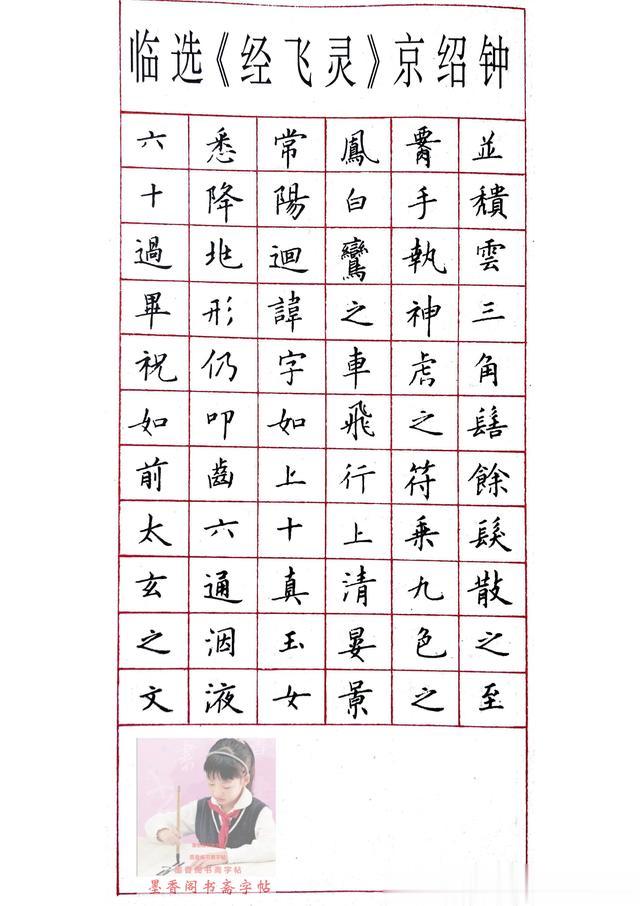 钟绍京《灵飞经》选临
並穨雲三角髻餘髮散之至
腰手執神虎之符乘九色之
鳳白鸞之車飛行上清晏景
常陽迴諱字如上十真玉女
悉降兆形仍叩齒六十通咽液
六十過畢祝如前太玄之文
墨香阁书斋字帖
墨香阁书斋字帖